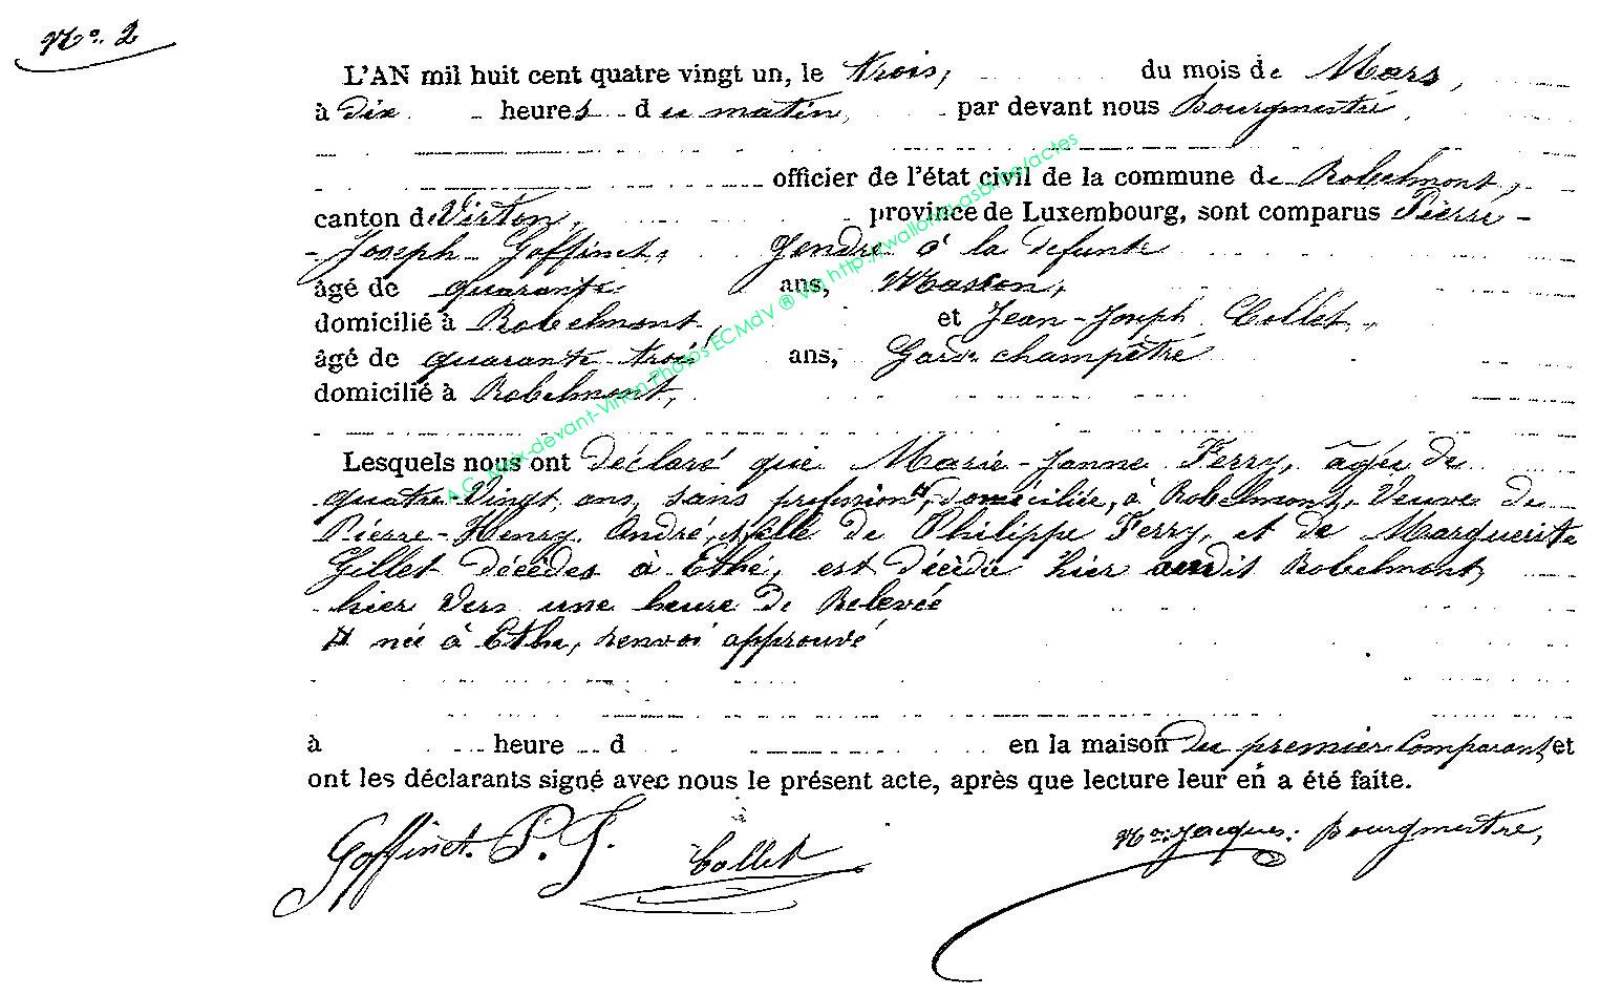 No. 2
L'AN mil huit cent quatre vingt un, le trois, du mois de Mars,
à dix heures du matin, par devant nous Bourgmestre,
officier de l'état civil de la commune de Robelmont,
canton de Virton, province de Luxembourg, sont comparus Pierre-
-Joseph Goffinet, Gendre à la défunte
âgé de quarante ans, Masson,
domicilié à Robelmont, et Jean-Joseph Collet,
âgé de quarante trois ans, Garde champêtre
domicilié à Robelmont,
Lesquels nous ont déclaré que Marie-Janne Ferry, âgée de
quatre-Vingt ans, sans profession #, domiciliée, à Robelmont, Veuve de
Pierre-Henry André, fille de Philippe Ferry, et de Marguerite
Gillet décédés à Ethe, est décédée hier audit Robelmont,
hier vers une heure de Relevée
# née à Ethe, renvoi approuvé
à heure d en la maison du premier Comparant, et
ont les déclarants signé avec nous le présent acte, après que lecture leur en a été faite.
Goffinet. P. J. Collet Jacques. Bourgmestre,
A.C. Meix-devant-Virton Photos ECMdV ® Via http://wallonia-asbl.be/actes